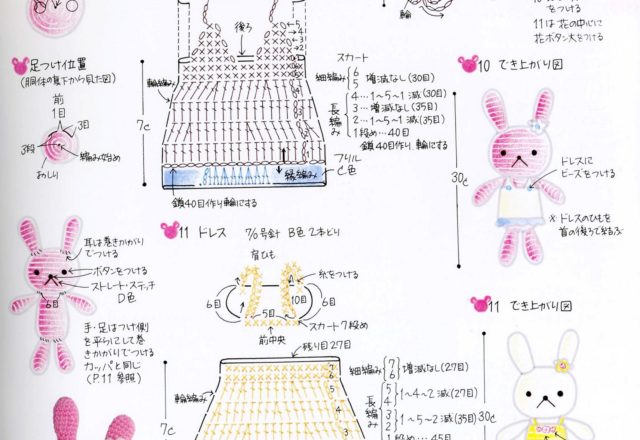 輪
をつける
11は花の中心に
花ボタン大をつける
後ろ
スカート
細編み
6
5
増減なし(30目)
長編み
4…1〜5〜1減(30目)
3…増減なし(35目)
2…1〜5〜1減(35目)
1段め…40目
鎖40目作り、輪にする
輪編み
7c
フリル
C色
縁編み
鎖40目作り輪にする
足つけ位置
(胴体の真下から見た図)
前
1目
3目
3段
編み始め
おしり
10 でき上がり図
30c
ドレスに
ビーズをつける
※ドレスのひもを
首の後ろで結ぶ
耳は巻きかがり
でつける
ボタンをつける
ストレート・ステッチ
D色
6目
手・足はつけ側
を平らにして巻
きかがりでつける
カッパと同じ
(P.11 参照)
11 ドレス 7/0号針 B色 2本どり
肩ひも
糸をつける
6目
10目
6目
5目
スカート7段め
前中央
残り目27目
輪編み
7c
細編み
7
6
増減なし(27目)
長編み
5
4
1〜4〜2減(27目)
3
2
1〜5〜2減(35目)
1段め…45目
11 でき上がり図
30c